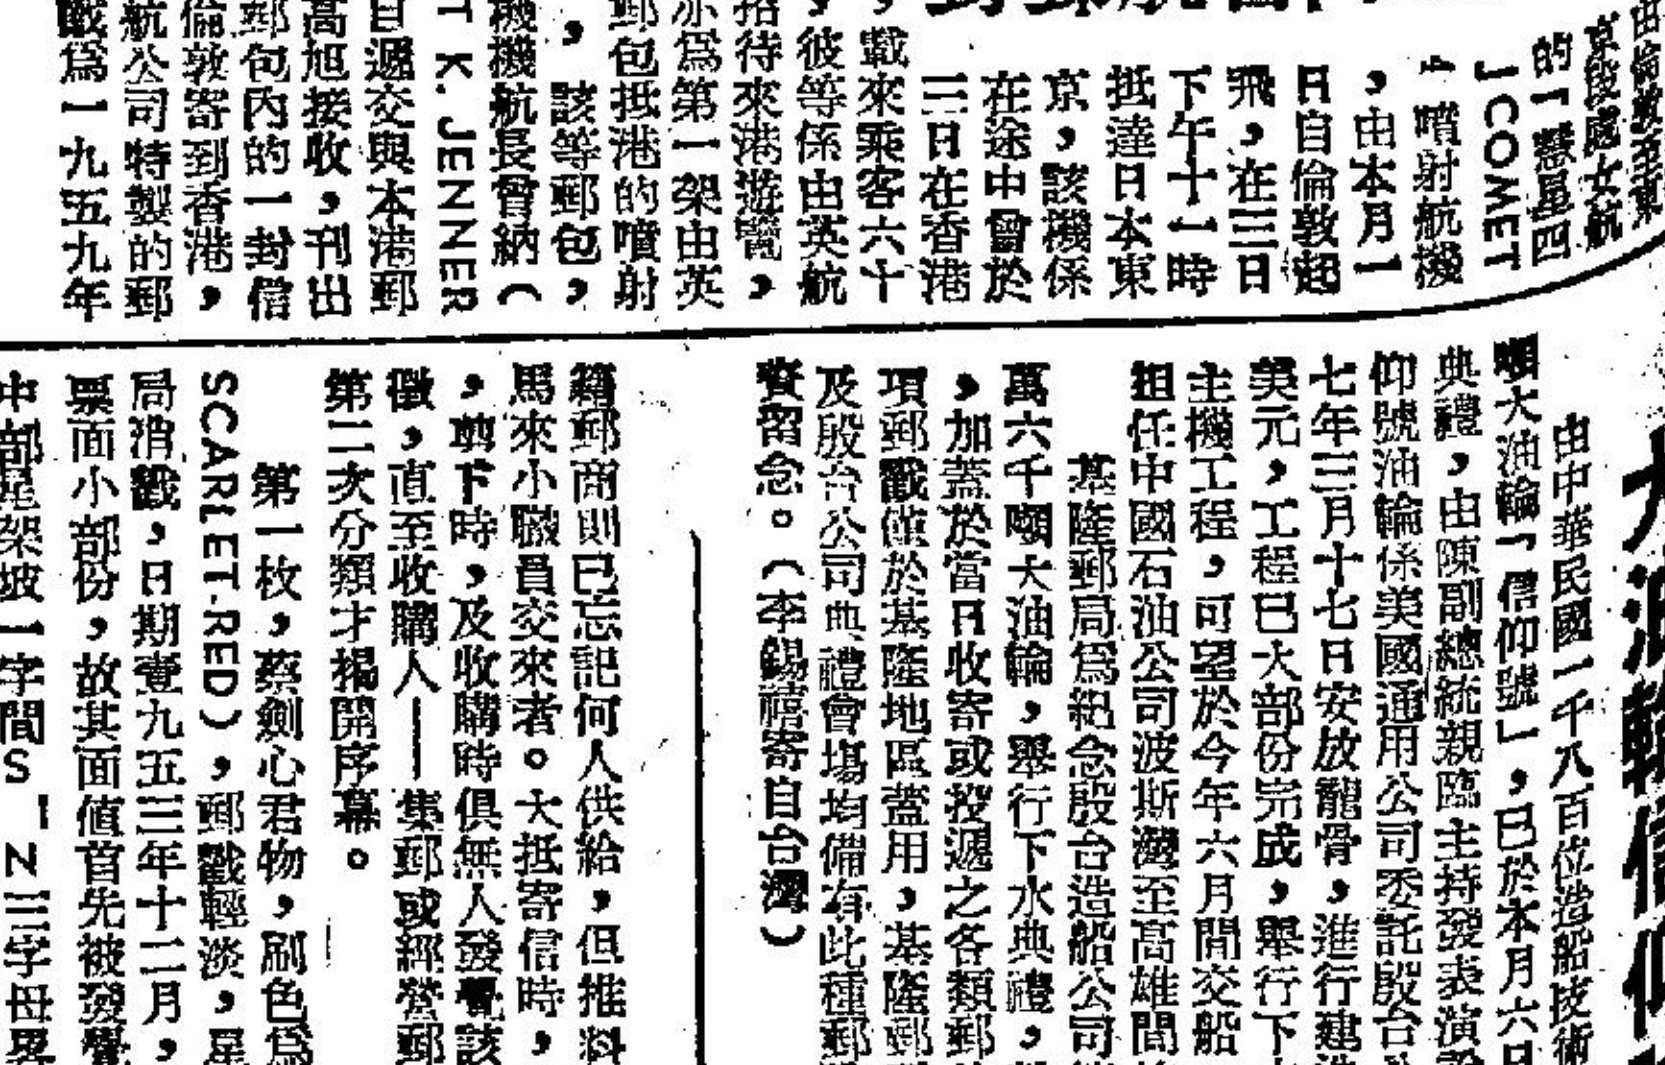 由倫敦至東
京首段處女航
的「慧星四
」COMET
4 噴射航機
，由本月一
日自倫敦起
飛，在三日
下午十一時
抵達日本東
京，該機係
在途中曾於
二日在香港
，載來乘客六十
，彼等係由英航
招待來港遊覽，
亦為第一架由英
郵包抵港的噴射
，該等郵包，
機機航長曾納（
T K. JENNER
自遞交與本港郵
高旭接收，刊出
郵包內的一封信
倫敦寄到香港，
航公司特製的郵
戳為一九五九年
大油輪信仰
由中華民國一千八百位造船技術
噸大油輪「信仰號」，已於本月六日
典禮，由陳副總統親臨主持發表演
仰號油輪係美國通用公司委託殷台
七年三月十七日安放龍骨，進行建造
美元，工程已大部份完成，舉行下
主機工程，可望於今年六月間交船
担任中國石油公司波斯灣至高雄間
基隆郵局為紀念殷台造船公司
萬六千噸大油輪，舉行下水典禮，
，加蓋於當日收寄或投遞之各類郵
項郵戳僅於基隆地區蓋用，基隆郵
及殷台公司典禮會場均備有此種郵
資留念。（李錫禧寄自台灣）
籍郵商則已忘記何人供給，但推料
馬來小職員交來者。大抵寄信時，
，剪下時，及收購時俱無人發覺該
徵，直至收購人——集郵或經營郵
第二次分類才揭開序幕。
第一枚，蔡劍心君物，刷色為
SCARLET-RED），郵戳輕淡，星
局消戳，日期壹九五三年十二月，
票面小部份，故其面值首先被發覺
中部是架坡一字間S I N三字母